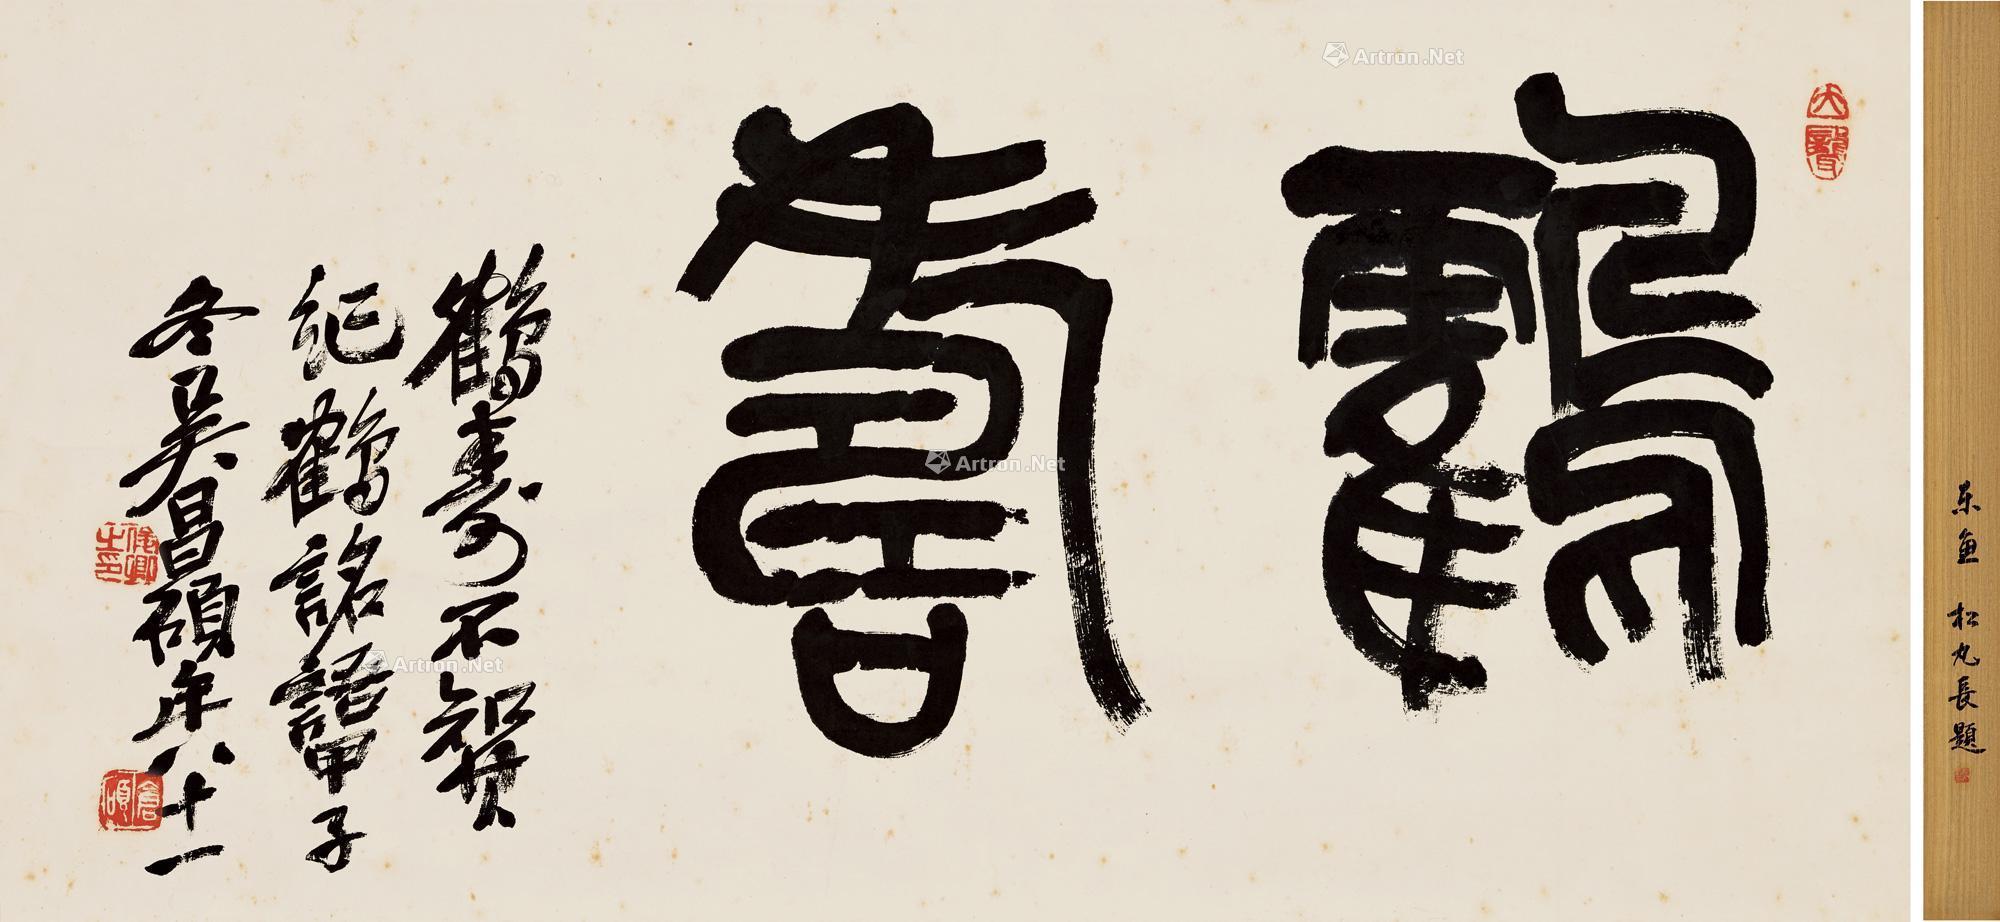 鶴壽
鶴壽不知其
紀瘞鶴銘語甲子
冬吳昌碩年八十一
大聾
俊卿之印
倉碩
東魚 松丸長題
Artron.Net
Artron.Net
Artron.Net